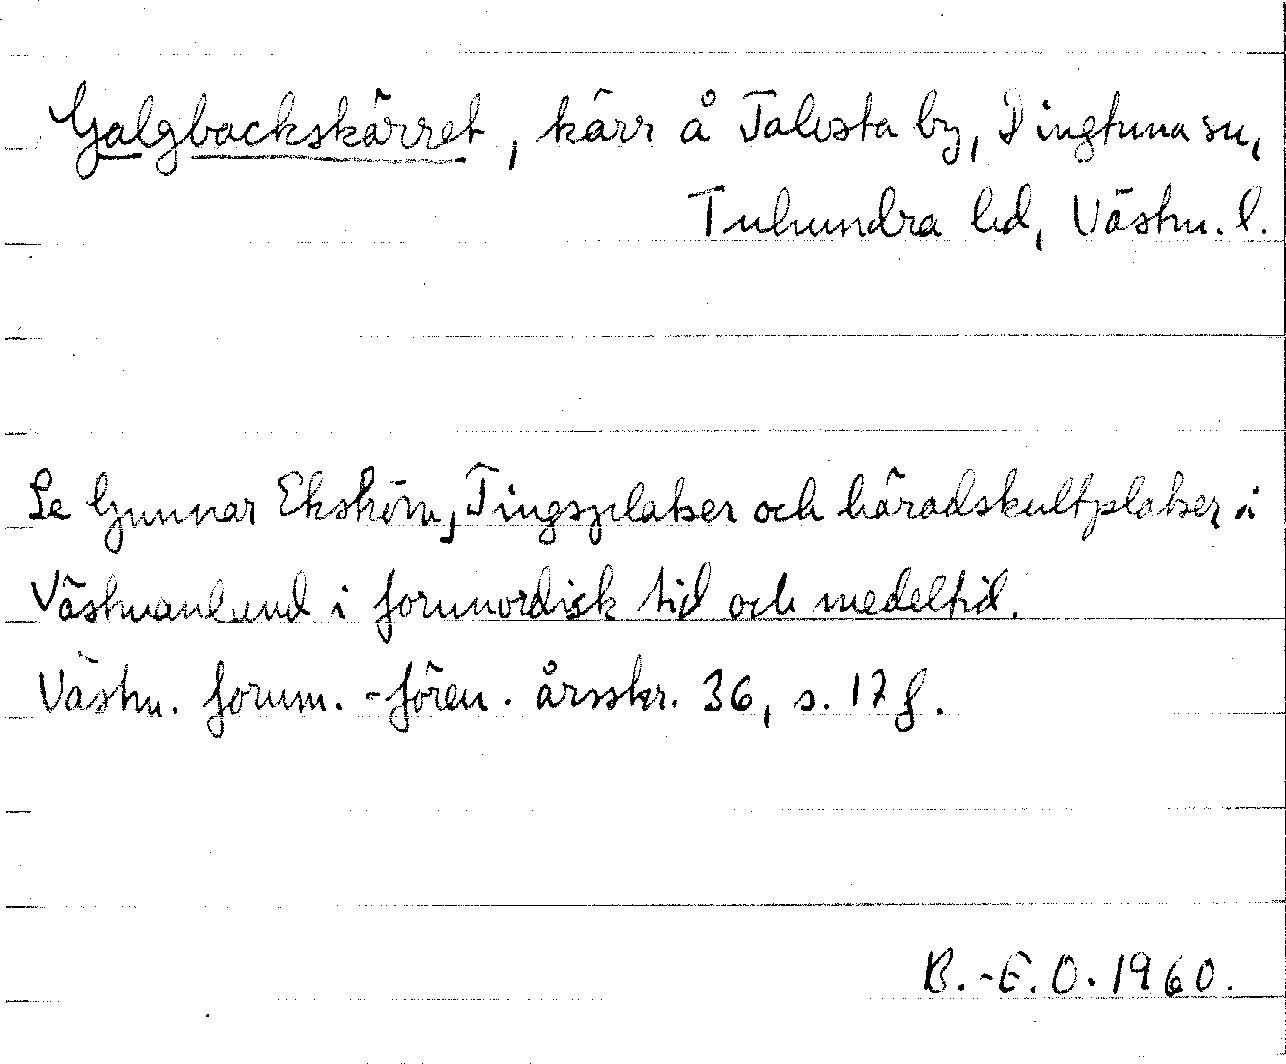 Galgbackskärret, kärr å Talesta by, Dingtuna sn,
Tuhundra hd, Västm. l.
Se Gunnar Ekström, Tingsplatser och häradskultplatser i
Västmanland i fornnordisk tid och medeltid.
Västm. fornm.-fören. årsskr. 36, s. 17 f.
B.-E.O. 1960.